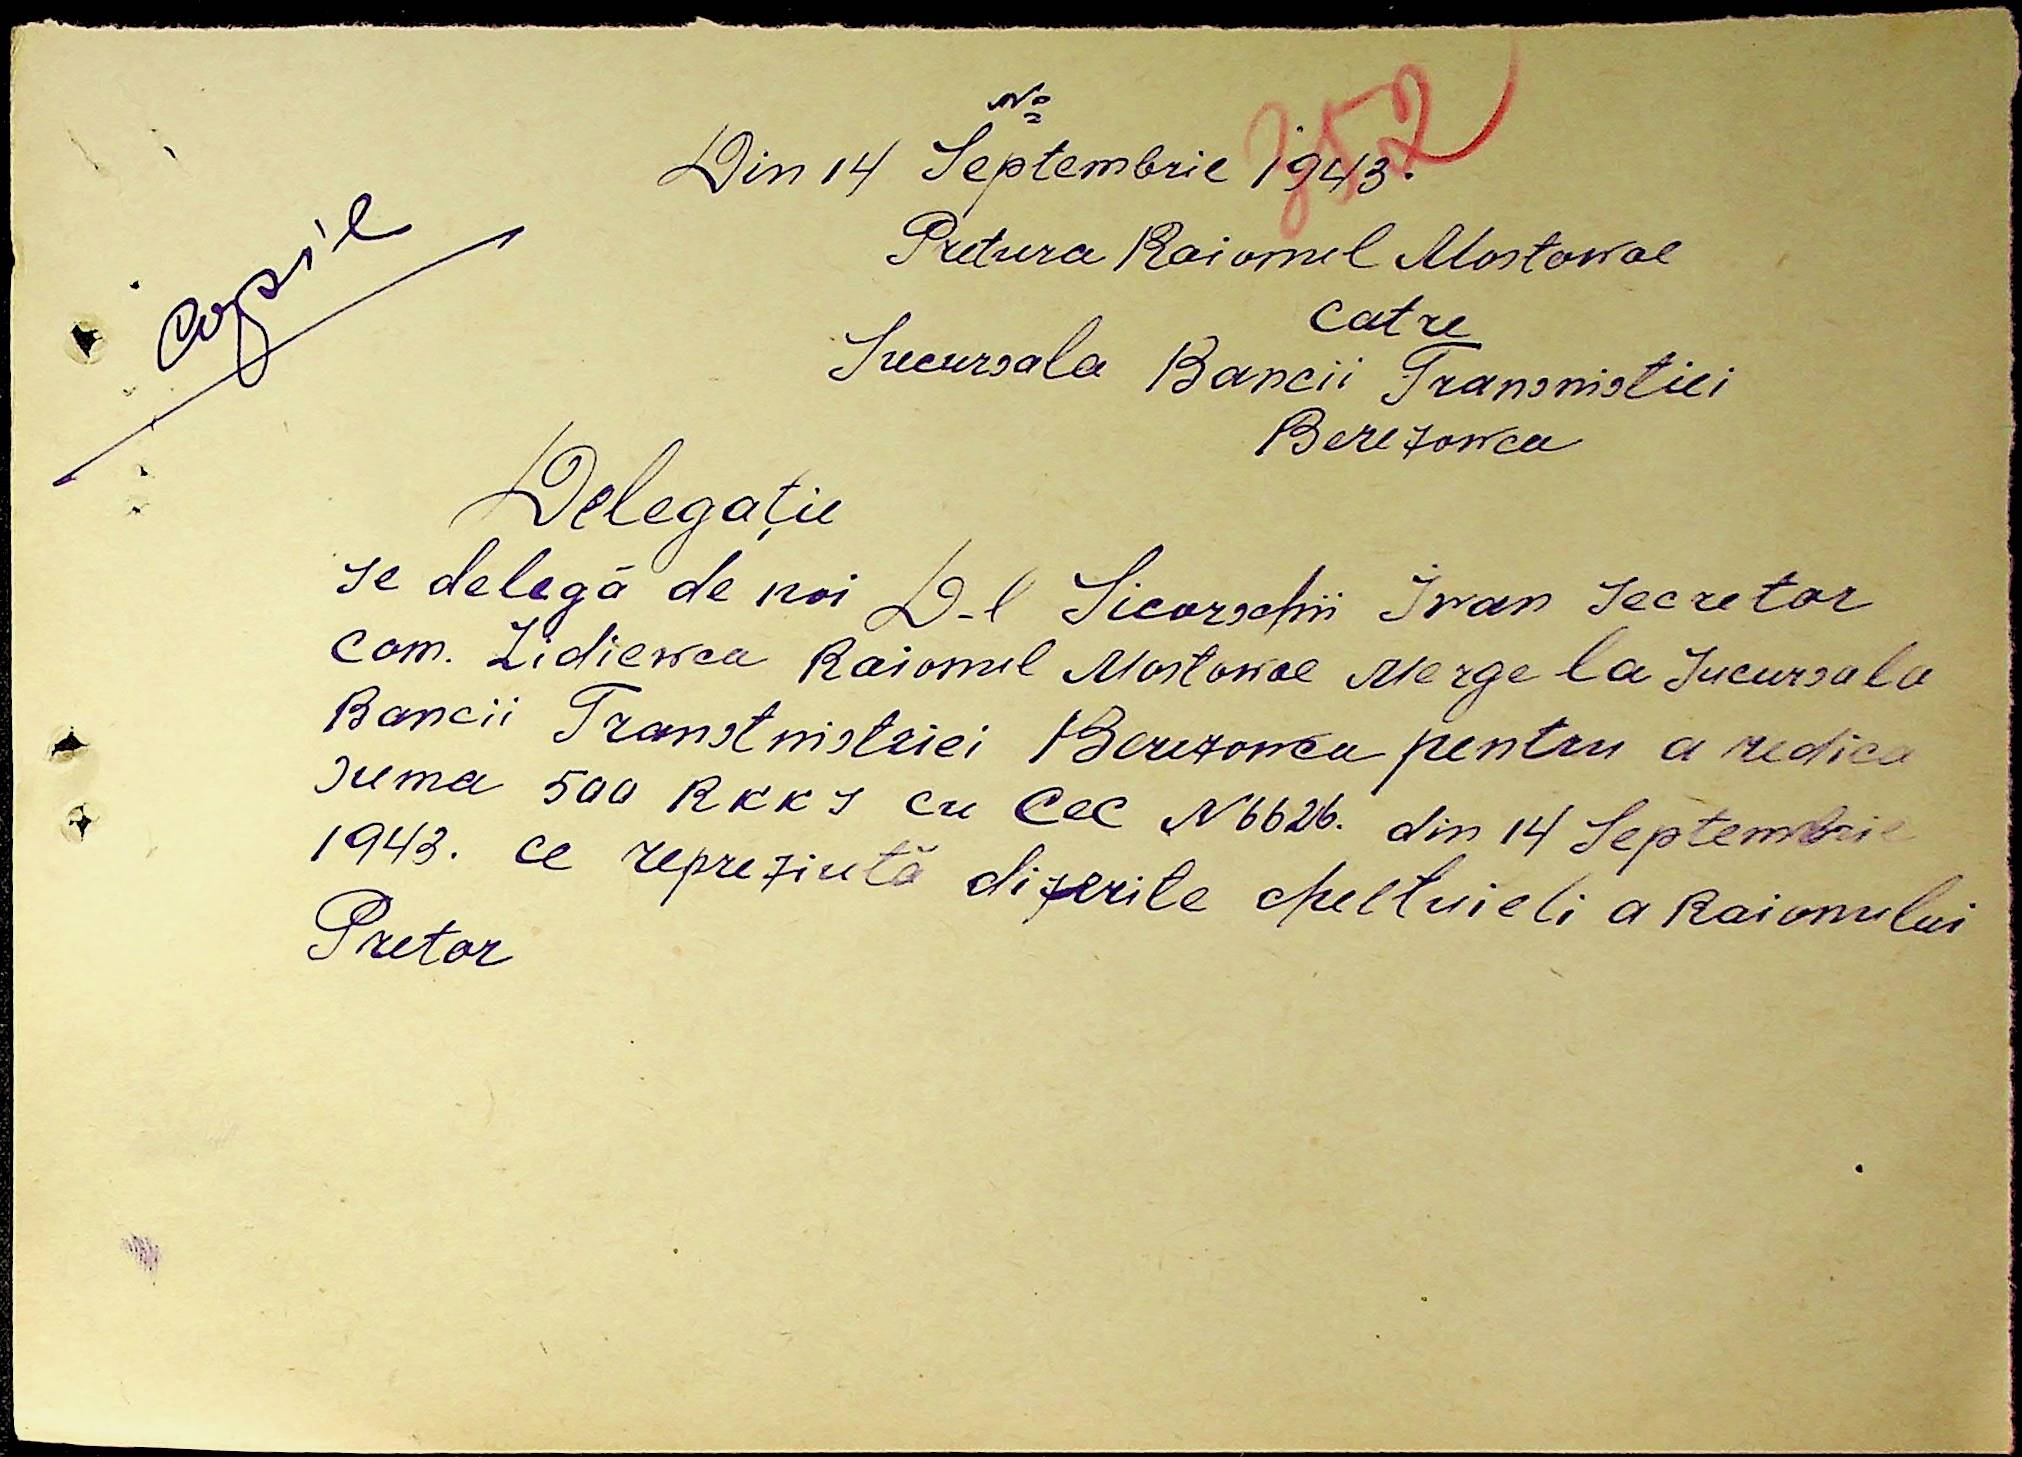 No
352
Din 14 Septembrie 1943.
Copie
Pretura Raionul Mostowoe
Catre
Sucursala Bancii Transnistiei
Berezowca
Delegaţie
Se delegă de noi D-l Sicorschii Iwan Secretar
Com. Lidiewca Raionul Mostowoe Merge la Sucursala
Bancii Transtnistriei Berezowca pentru a redica
Suma 500 RKKS cu Cec N 6626. din 14 Septembrie
1943. ce reprezintă diferite cheltuieli a Raionului
Pretor